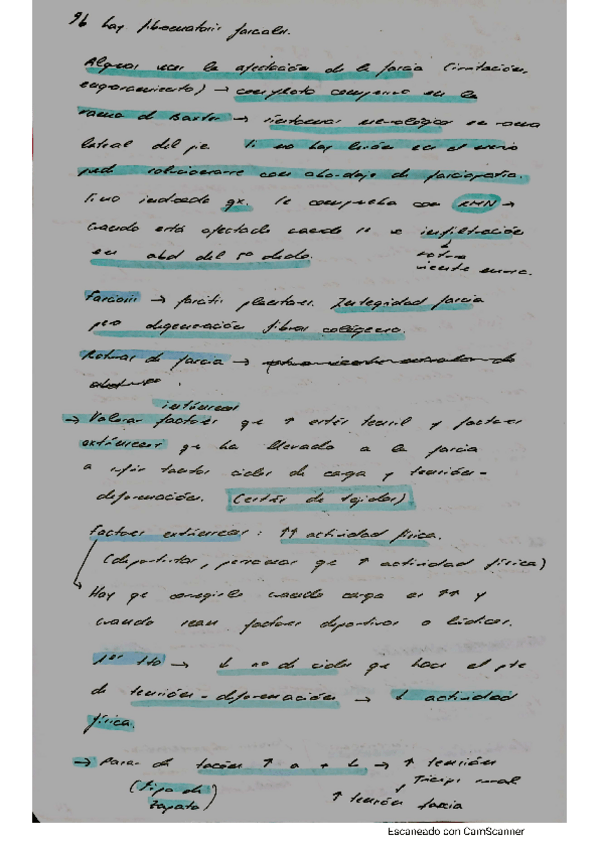 96 hay fibromatosis fascales.
Algunas veces la afectación de la fascia (irritación,
engrosamiento) → complejo compromiso en la
rama de Baxter → síntomas neurológicos en rama
lateral del pie Si no hay lesión en el nervio
puede solucionarse con abordaje de fasciopatía.
Sino indicado qx. Se comprueba con RMN →
cuando está afectado cuando se ve infiltración
en abd del 5º dedo.
Fasciosis → fascitis plantares. Integridad fascia
pero degeneración fibras colágeno.
Roturas de fascia →
intrínsecos
→ Valorar factores que ↑ estrés tensil y factores
extrínsecos que ha llevado a la fascia
a sufrir tantos ciclos de carga y tensión-
deformación. (estrés de tejidos)
Factores extrínsecos: ↑↑ actividad física.
(deportistas, personas que ↑ actividad física)
Hay que corregirlo cuando carga es ↑↑ y
cuando sean factores deportivos o lúdicos.
1er tto → ↓ nº de ciclos que hace el pte
de tensión-deformación → ↓ actividad
física.
→ Pasar de tacón ↑ a + ↓ → ↑ tensión
(tipo de
zapato)
Tríceps sural
↑ tensión fascia
Escaneado con CamScanner